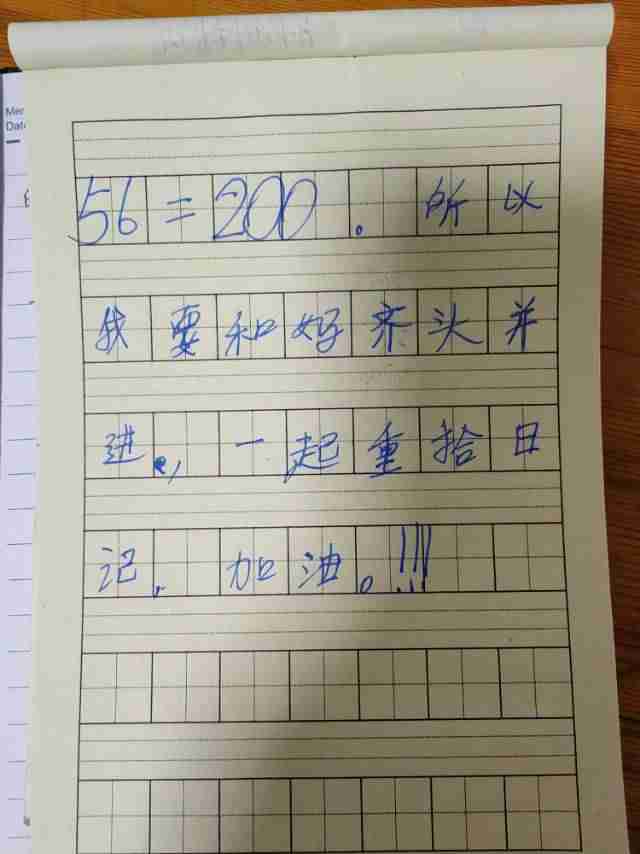 Mer
Date
56=200。所以
我要和好齐头并
进,一起重拾日
记,加油。!!!